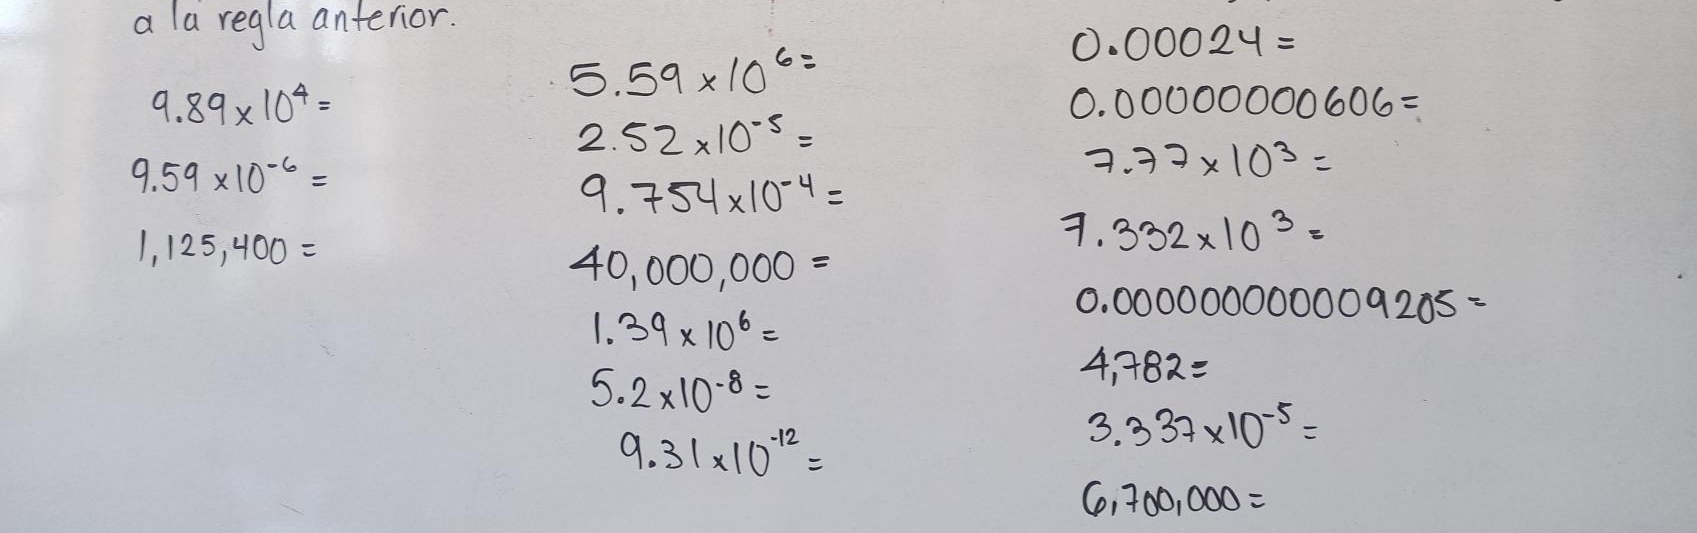 a la regla anterior.
9.89 x 10⁴ =
9.59 x 10⁻⁶ =
1,125,400 =
5.59 x 10⁶ =
2.52 x 10⁻⁵ =
9.754 x 10⁻⁴ =
40,000,000 =
1.39 x 10⁶ =
5.2 x 10⁻⁸ =
9.31 x 10⁻¹² =
0.00024 =
0.00000000606 =
7.77 x 10³ =
7.332 x 10³ =
0.000000000009205 =
4,782 =
3.337 x 10⁻⁵ =
6,700,000 =